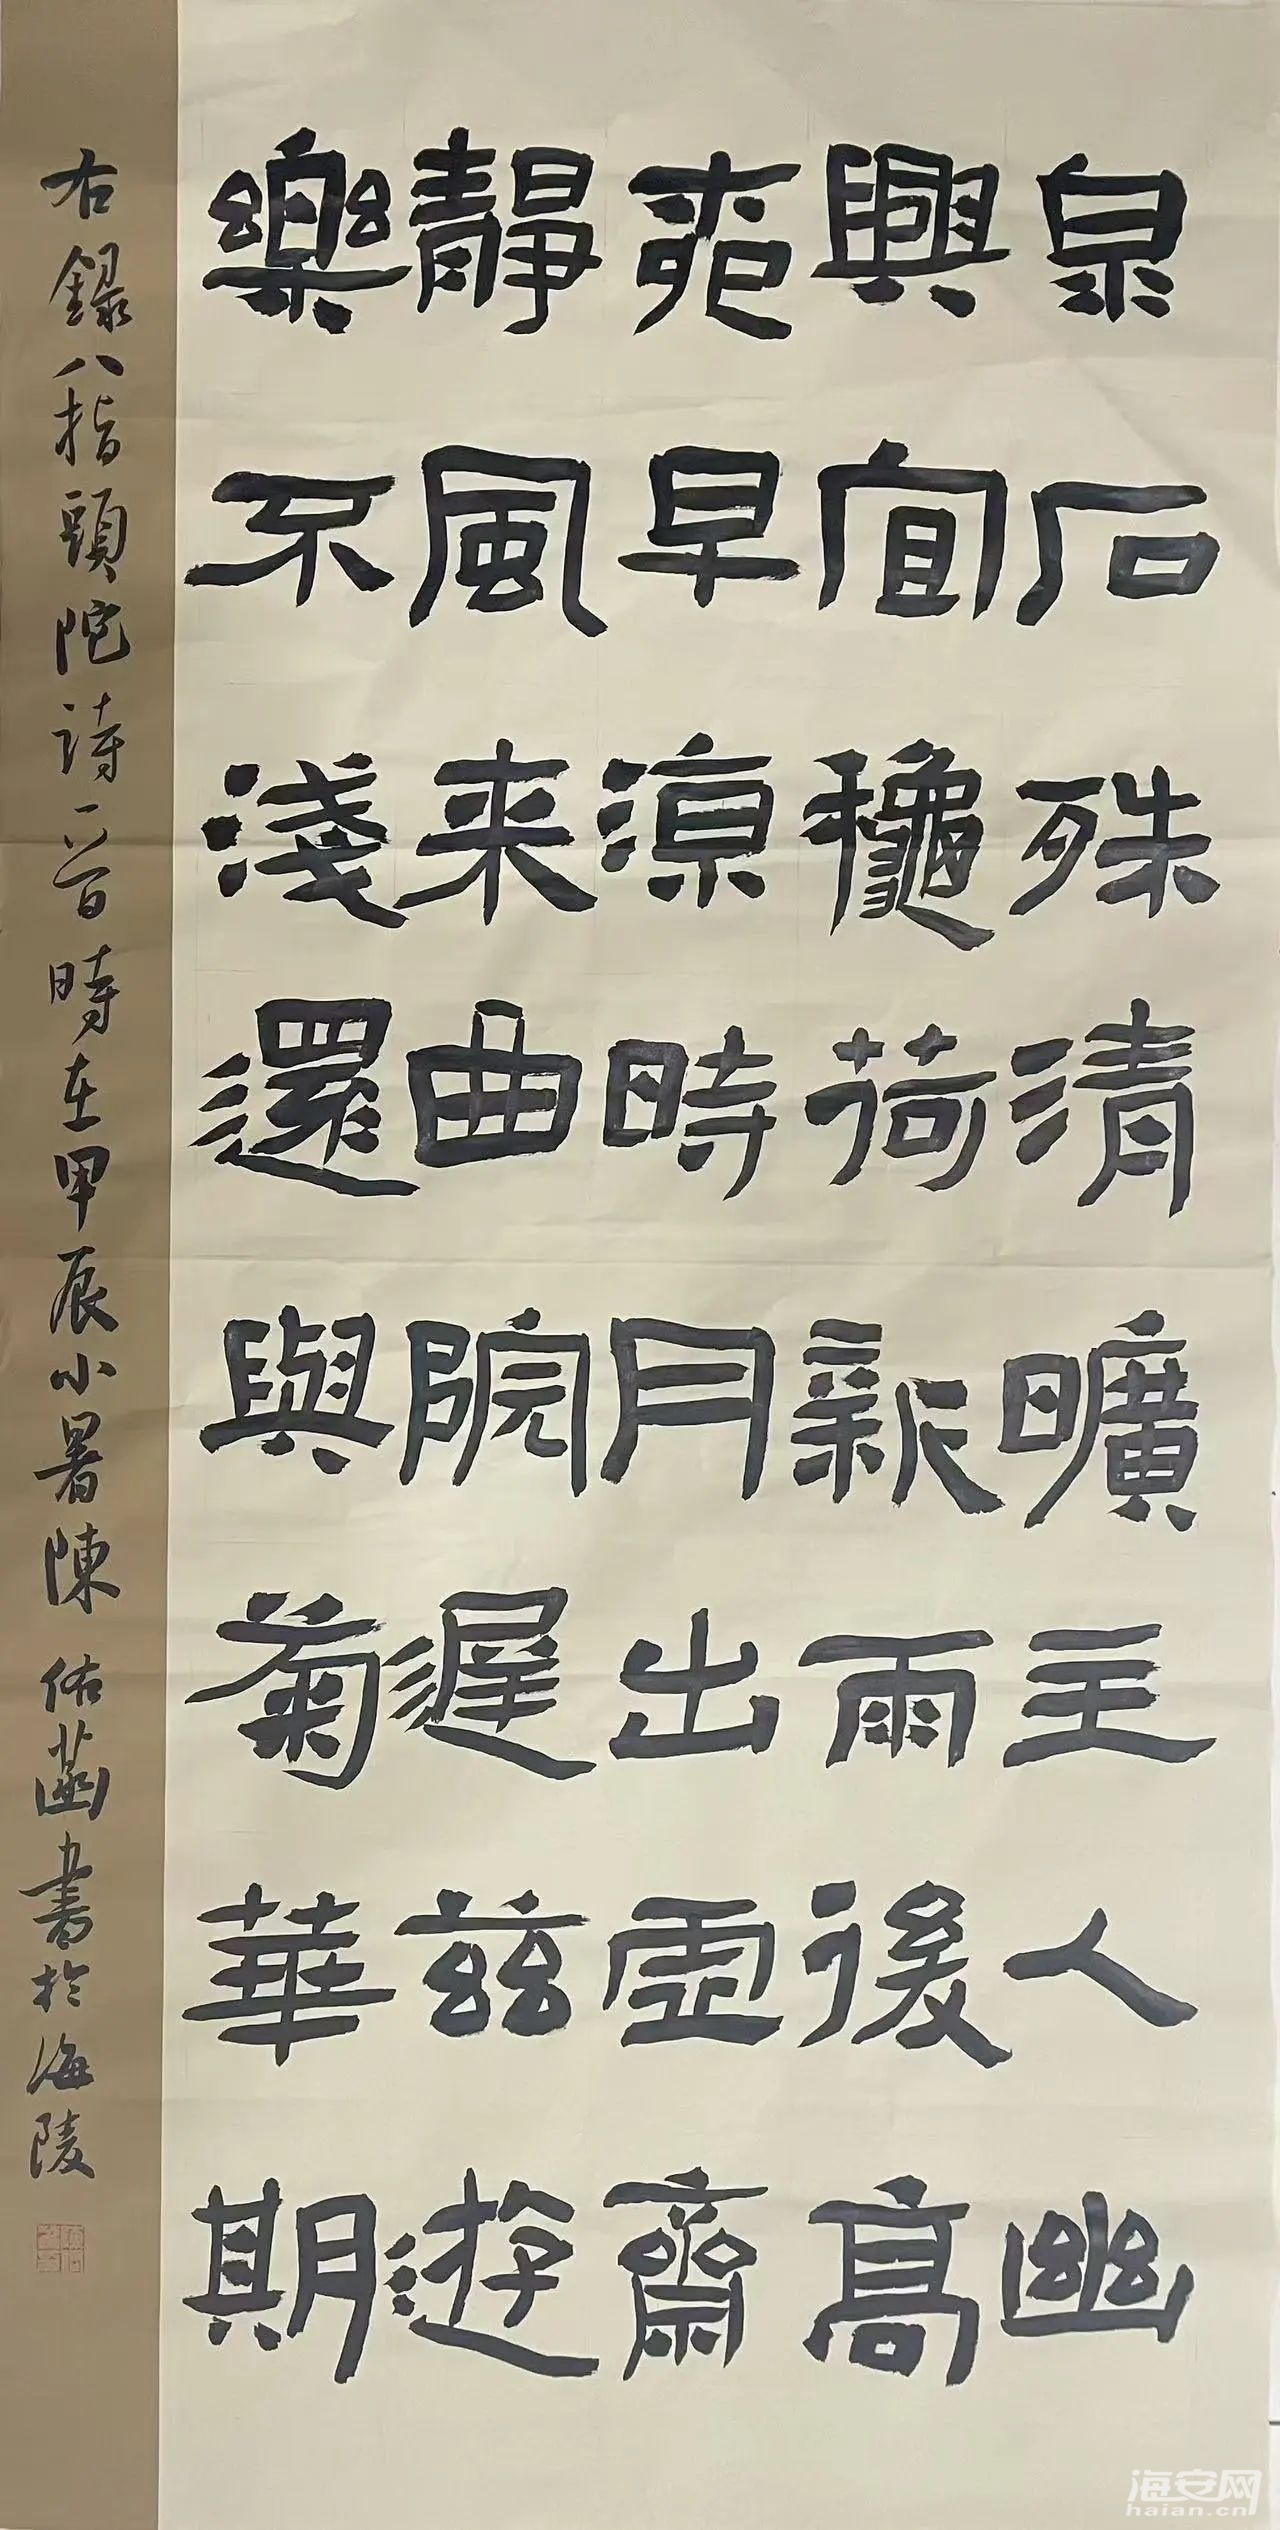 泉石殊清曠主人幽
興宜穐荷新雨後高
苑早涼時月出虛齋
靜風来曲院遲茲遊
樂不淺還與菊華期
右録八指頭陀詩一首時在甲辰小暑陳佑菡書於海陵
海安网
haian.cn